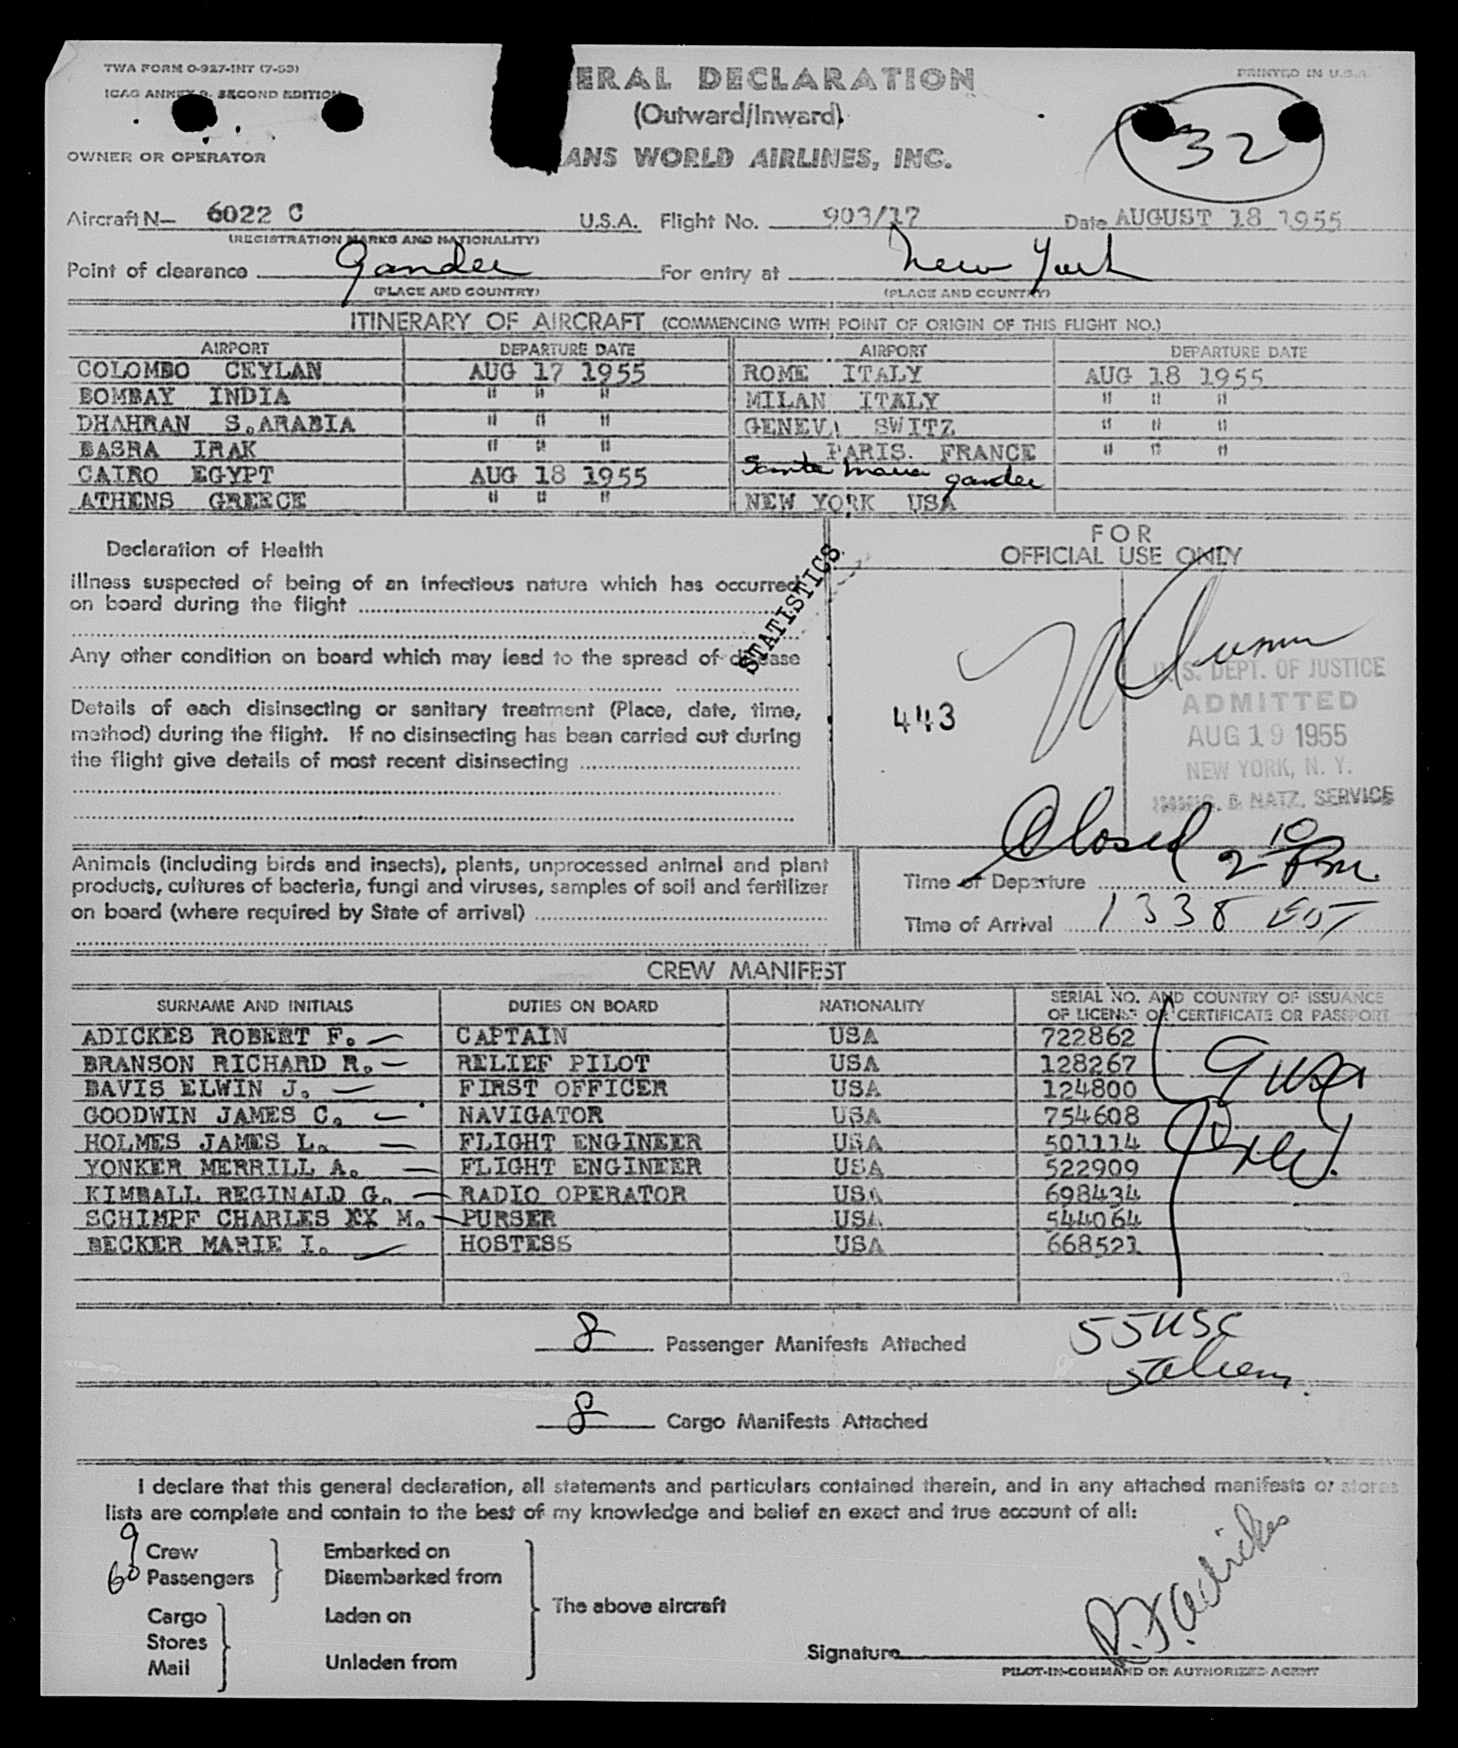 TWA FORM O-927-INT (7-53)
ICAO ANNEX 9, SECOND EDITION
ERAL DECLARATION
PRINTED IN U.S.A.
(Outward/Inward)
32
OWNER OR OPERATOR
ANS WORLD AIRLINES, INC.
Aircraft N— 6022 C U.S.A. Flight No. 903/17 Date AUGUST 18 1955
(REGISTRATION MARKS AND NATIONALITY)
Point of clearance Gander For entry at New York
(PLACE AND COUNTRY) (PLACE AND COUNTRY)
ITINERARY OF AIRCRAFT (COMMENCING WITH POINT OF ORIGIN OF THIS FLIGHT NO.)
AIRPORT DEPARTURE DATE AIRPORT DEPARTURE DATE
COLOMBO CEYLAN AUG 17 1955 ROME ITALY AUG 18 1955
BOMBAY INDIA " " " MILAN ITALY " " "
DHAHRAN S.ARABIA " " " GENEVA SWITZ " " "
BASRA IRAK " " " PARIS. FRANCE " " "
CAIRO EGYPT AUG 18 1955 Santa Maria Gander
ATHENS GREECE " " " NEW YORK USA
Declaration of Health
FOR
OFFICIAL USE ONLY
Illness suspected of being of an infectious nature which has occurred
on board during the flight
STATISTICS
Any other condition on board which may lead to the spread of disease
Details of each disinsecting or sanitary treatment (Place, date, time,
method) during the flight. If no disinsecting has been carried out during
the flight give details of most recent disinsecting
443
U.S. DEPT. OF JUSTICE
ADMITTED
AUG 19 1955
NEW YORK, N. Y.
IMMIG. & NATZ. SERVICE
Animals (including birds and insects), plants, unprocessed animal and plant
products, cultures of bacteria, fungi and viruses, samples of soil and fertilizer
on board (where required by State of arrival)
Closed 2 10 Pm
Time of Departure
Time of Arrival 1338 EDT
CREW MANIFEST
SURNAME AND INITIALS DUTIES ON BOARD NATIONALITY SERIAL NO. AND COUNTRY OF ISSUANCE
OF LICENSE OR CERTIFICATE OR PASSPORT
ADICKES ROBERT F. CAPTAIN USA 722862
BRANSON RICHARD R. RELIEF PILOT USA 128267
DAVIS ELWIN J. FIRST OFFICER USA 124800
GOODWIN JAMES C. NAVIGATOR USA 754608
HOLMES JAMES L. FLIGHT ENGINEER USA 501114
YONKER MERRILL A. FLIGHT ENGINEER USA 522909
KIMBALL REGINALD G. RADIO OPERATOR USA 698434
SCHIMPF CHARLES XX M. PURSER USA 544064
BECKER MARIE I. HOSTESS USA 668521
9 USA
8 Passenger Manifests Attached
55 USC
5 aliens
8 Cargo Manifests Attached
I declare that this general declaration, all statements and particulars contained therein, and in any attached manifests or stores
lists are complete and contain to the best of my knowledge and belief an exact and true account of all:
9 Crew
60 Passengers
Embarked on
Disembarked from
Cargo
Stores
Mail
Laden on
Unladen from
The above aircraft
Signature R. F. Adickes
PILOT-IN-COMMAND OR AUTHORIZED AGENT